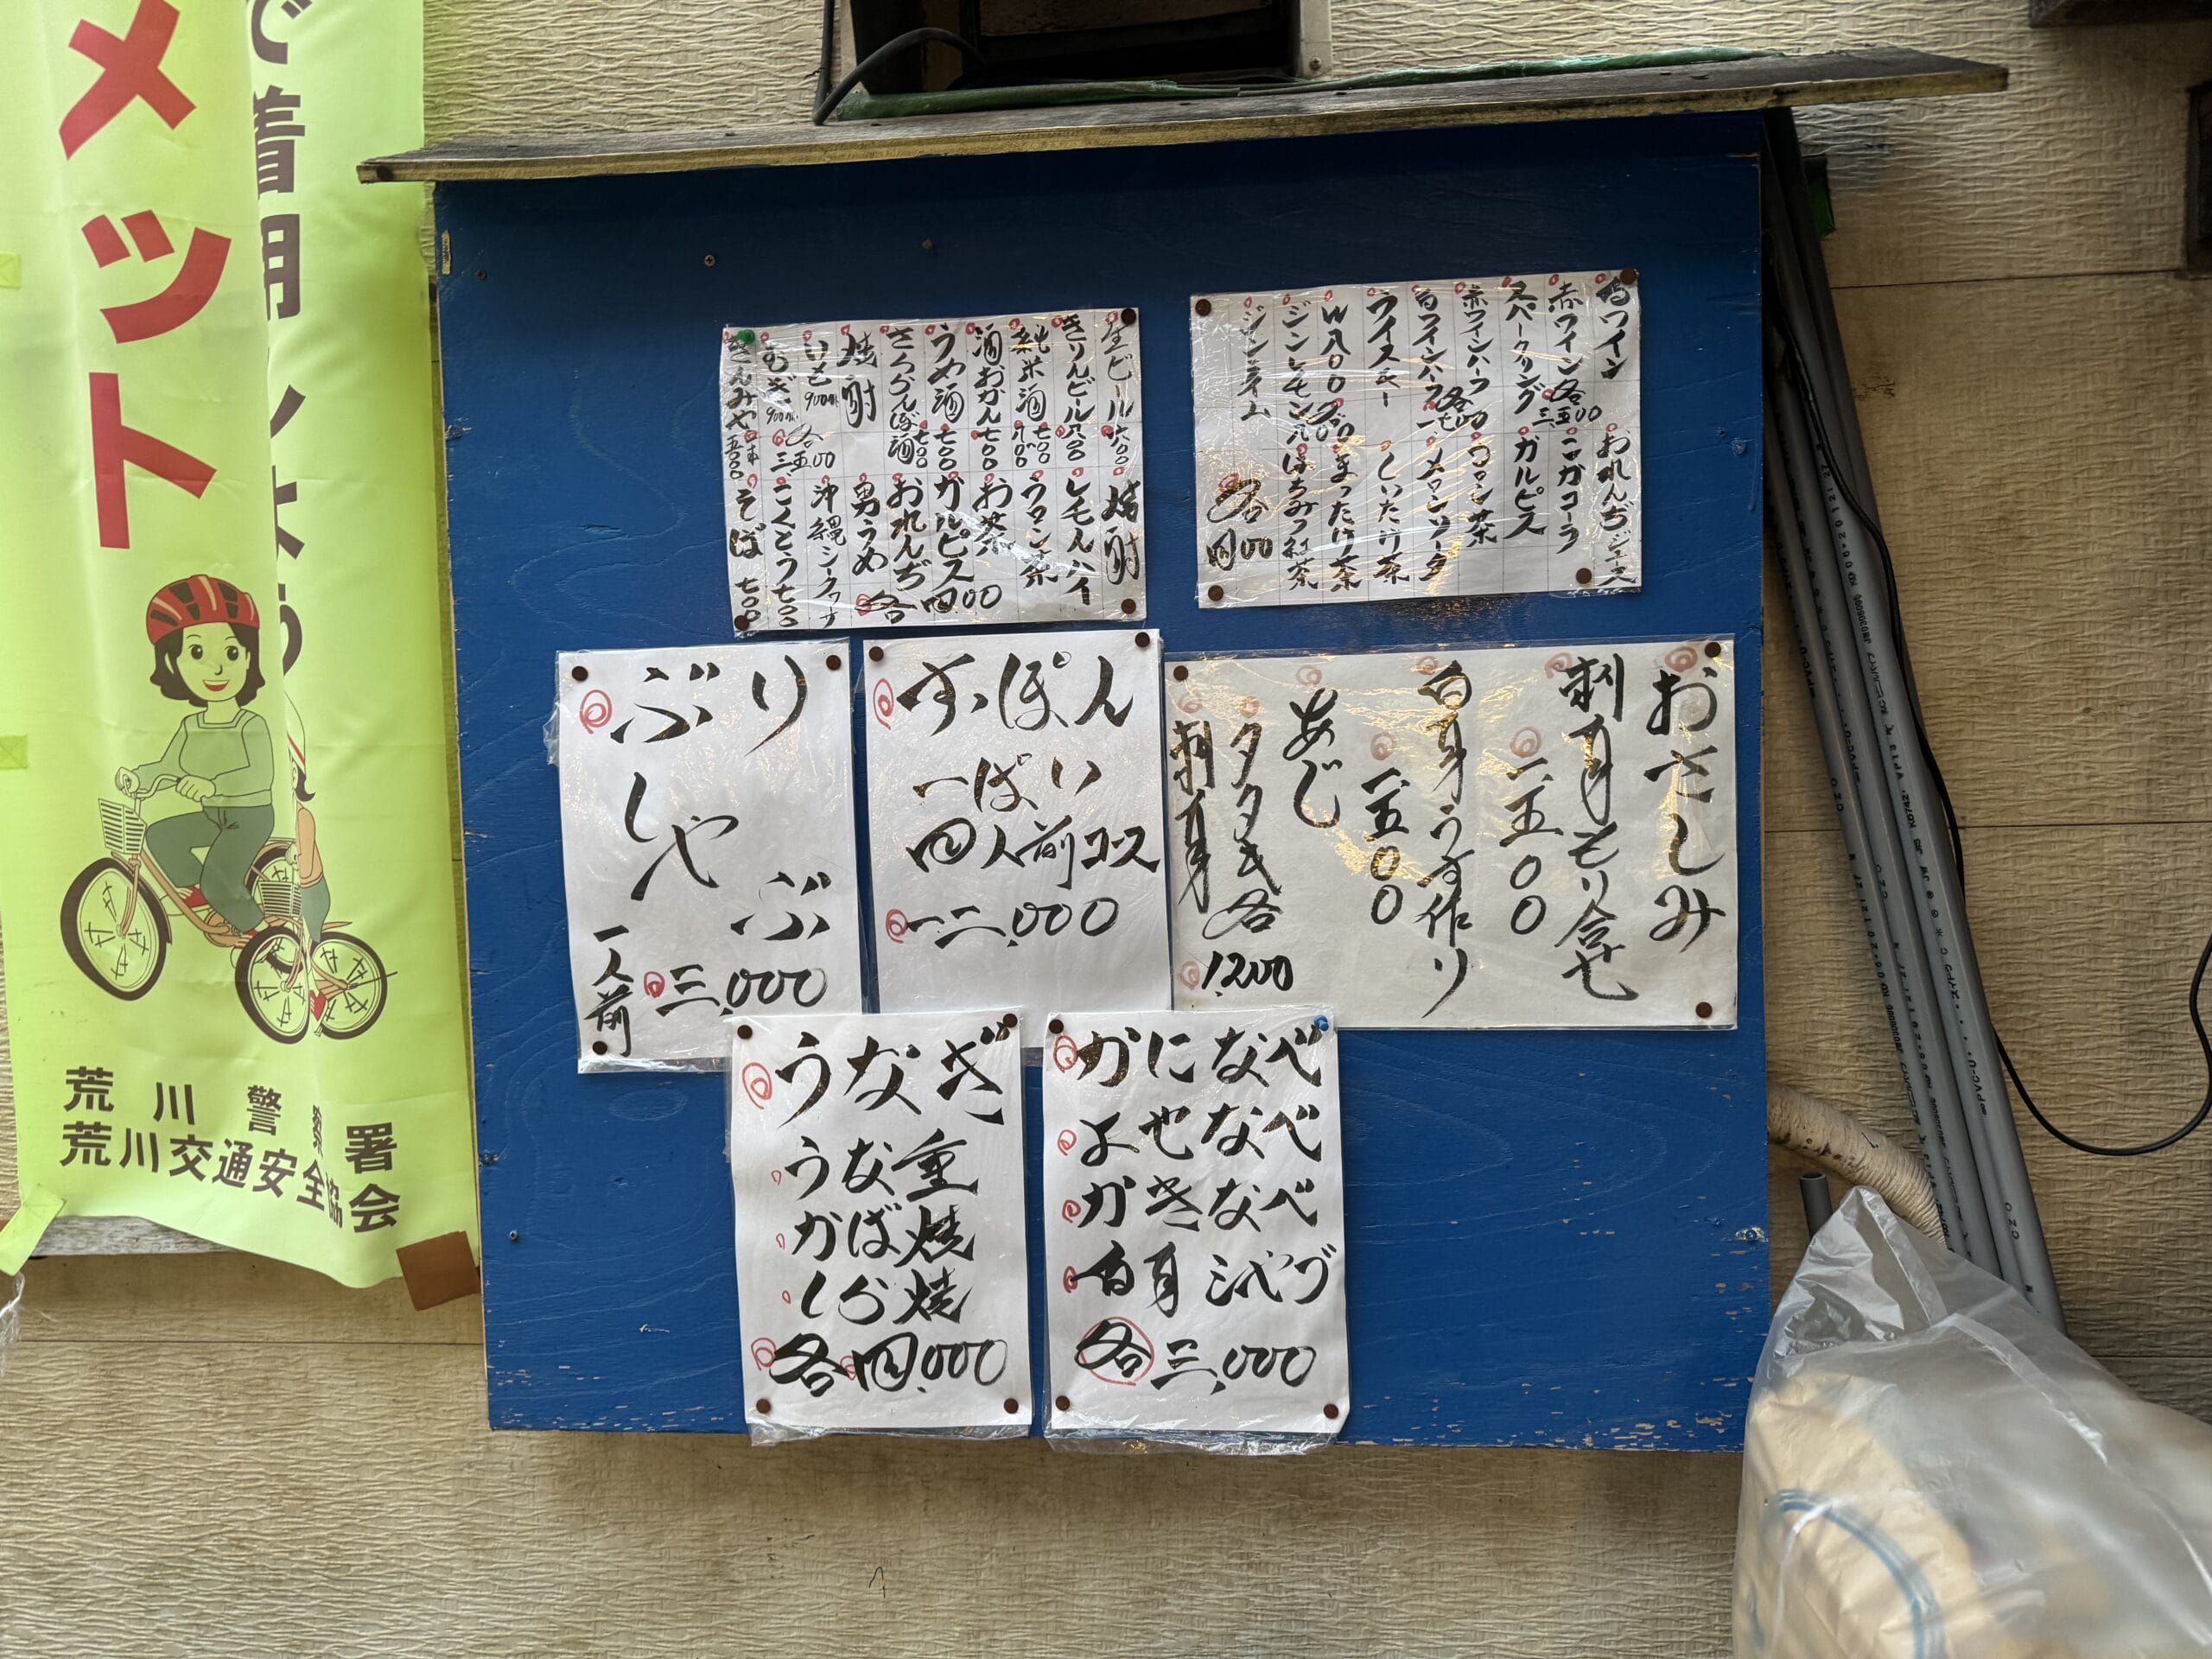 メット
で着用しよう
荒川警察署
荒川交通安全協会
生ビール 六〇〇
きりんビール 八〇〇
純米酒 七〇〇
八〇〇
酒おかん 七〇〇
うめ酒 七〇〇
さくらんぼ酒 七〇〇
焼酎
いも 900ml
むぎ 900ml
各 三五00
きんみや 一本 五〇〇〇
焼酎
レモンハイ
ウーロン茶
お茶
カルピス
おれんぢ
男うめ
各四00
沖縄シークワサ
こくとう 七〇〇
そば 七〇〇
白ワイン
赤ワイン 各三五00
スパークリング
赤ワインハーフ
白ワインハーフ
ウイスキー
W 八〇〇
ジンレモン
ジンライム
おれんぢジュース
コカコーラ
カルピス
ウーロン茶
メロンソーダ
しいたけ茶
まったけ茶
はちみつ紅茶
各四00
ぶり
しゃ
ぶ
一人前
三,000
すぽん
一ぱい
四人前コース
一二,000
おさしみ
刺身もり合せ
一、五〇〇
白身うす作り
一、五〇〇
あじ
タタき
刺身
各1,200
うなぎ
うな重
かば焼
しら焼
各四,000
かになべ
よせなべ
かきなべ
白身
各三,000